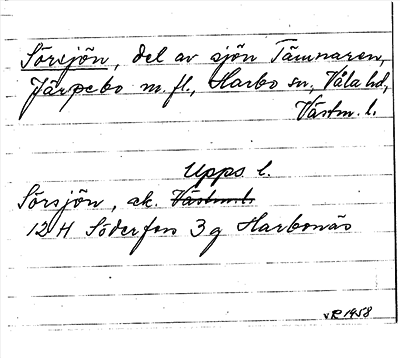 Sörsjön, del av sjön Tämnaren,
Järpebo m. fl., Harbo sn, Våla hd,
Västm. l.
Upps. l.
Sörsjön, ek. Västm. l.
12 H Söderfors 3 g Harbonäs
vR 1958